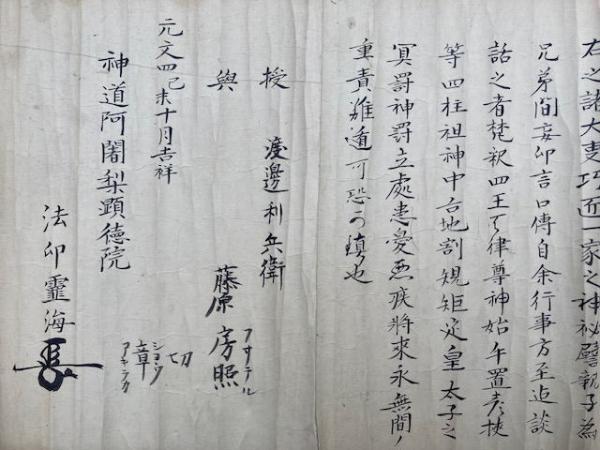 右之諸大事巧匠一家之神祕譬親子為
兄弟間妄印言口傳自余行事方至迠談
話之者梵釈四王天律尊神始午置彦挾
等四柱祖神中台地割規矩定皇太子之
冥罰神罰立處患憂悪疾將來永無間ノ
重責難遁可恐可鎮也
授 渡邊利兵衛
藤原房照
フサテル
與
切
章
ショウ
アキラカ
元文四己未十月吉祥
神道阿闍梨顕德院
法印霊海